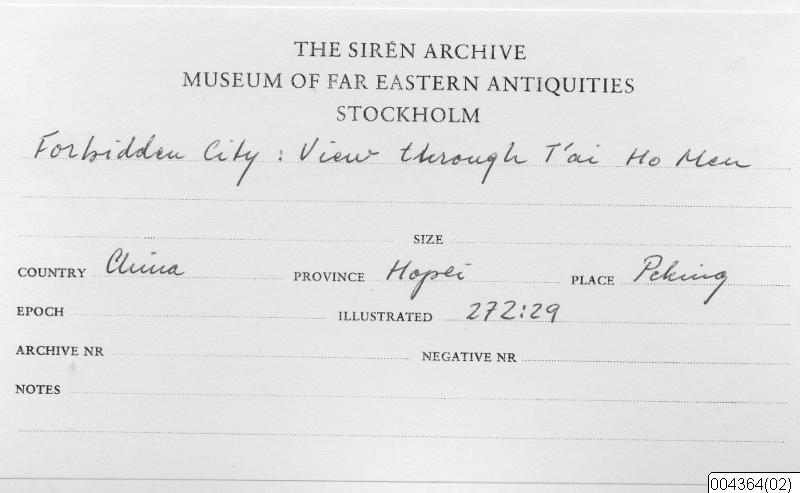 THE SIRÉN ARCHIVE
MUSEUM OF FAR EASTERN ANTIQUITIES
STOCKHOLM
Forbidden City : View through T'ai Ho Men
SIZE
COUNTRY China PROVINCE Hopei PLACE Peking
EPOCH ILLUSTRATED 272:29
ARCHIVE NR NEGATIVE NR
NOTES
004364(02)